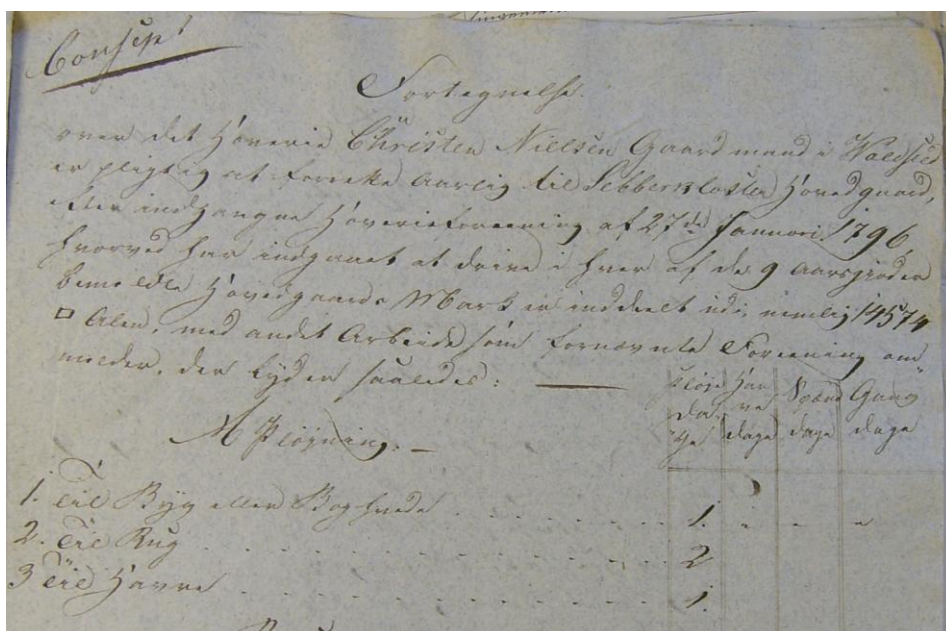 Concept
Fortegnelse.
over det Hoverie Christen Nielsen Gaardmand i Walsted
er pligtig at forrette Aarlig til Sebberkloster Hovedgaard,
efter indgangne Hoverieforeening af 27de Januari. 1796,
hvorved har indgaaet at drive i hver af de 9 Aarsgierder
bemeldte Hovedgaards Mark er inddeelt udi, nemlig: 14574
□ Alen, med andet Arbeide som fornævnte Foreening om„
melder, der lyder saaledes:
Pløje dage Har ve dage Spænd dage Gang dage
A Pløyning.
1. Til Byg eller Boghvede 1.
2. Til Rug 2
3 Til Havre 1.